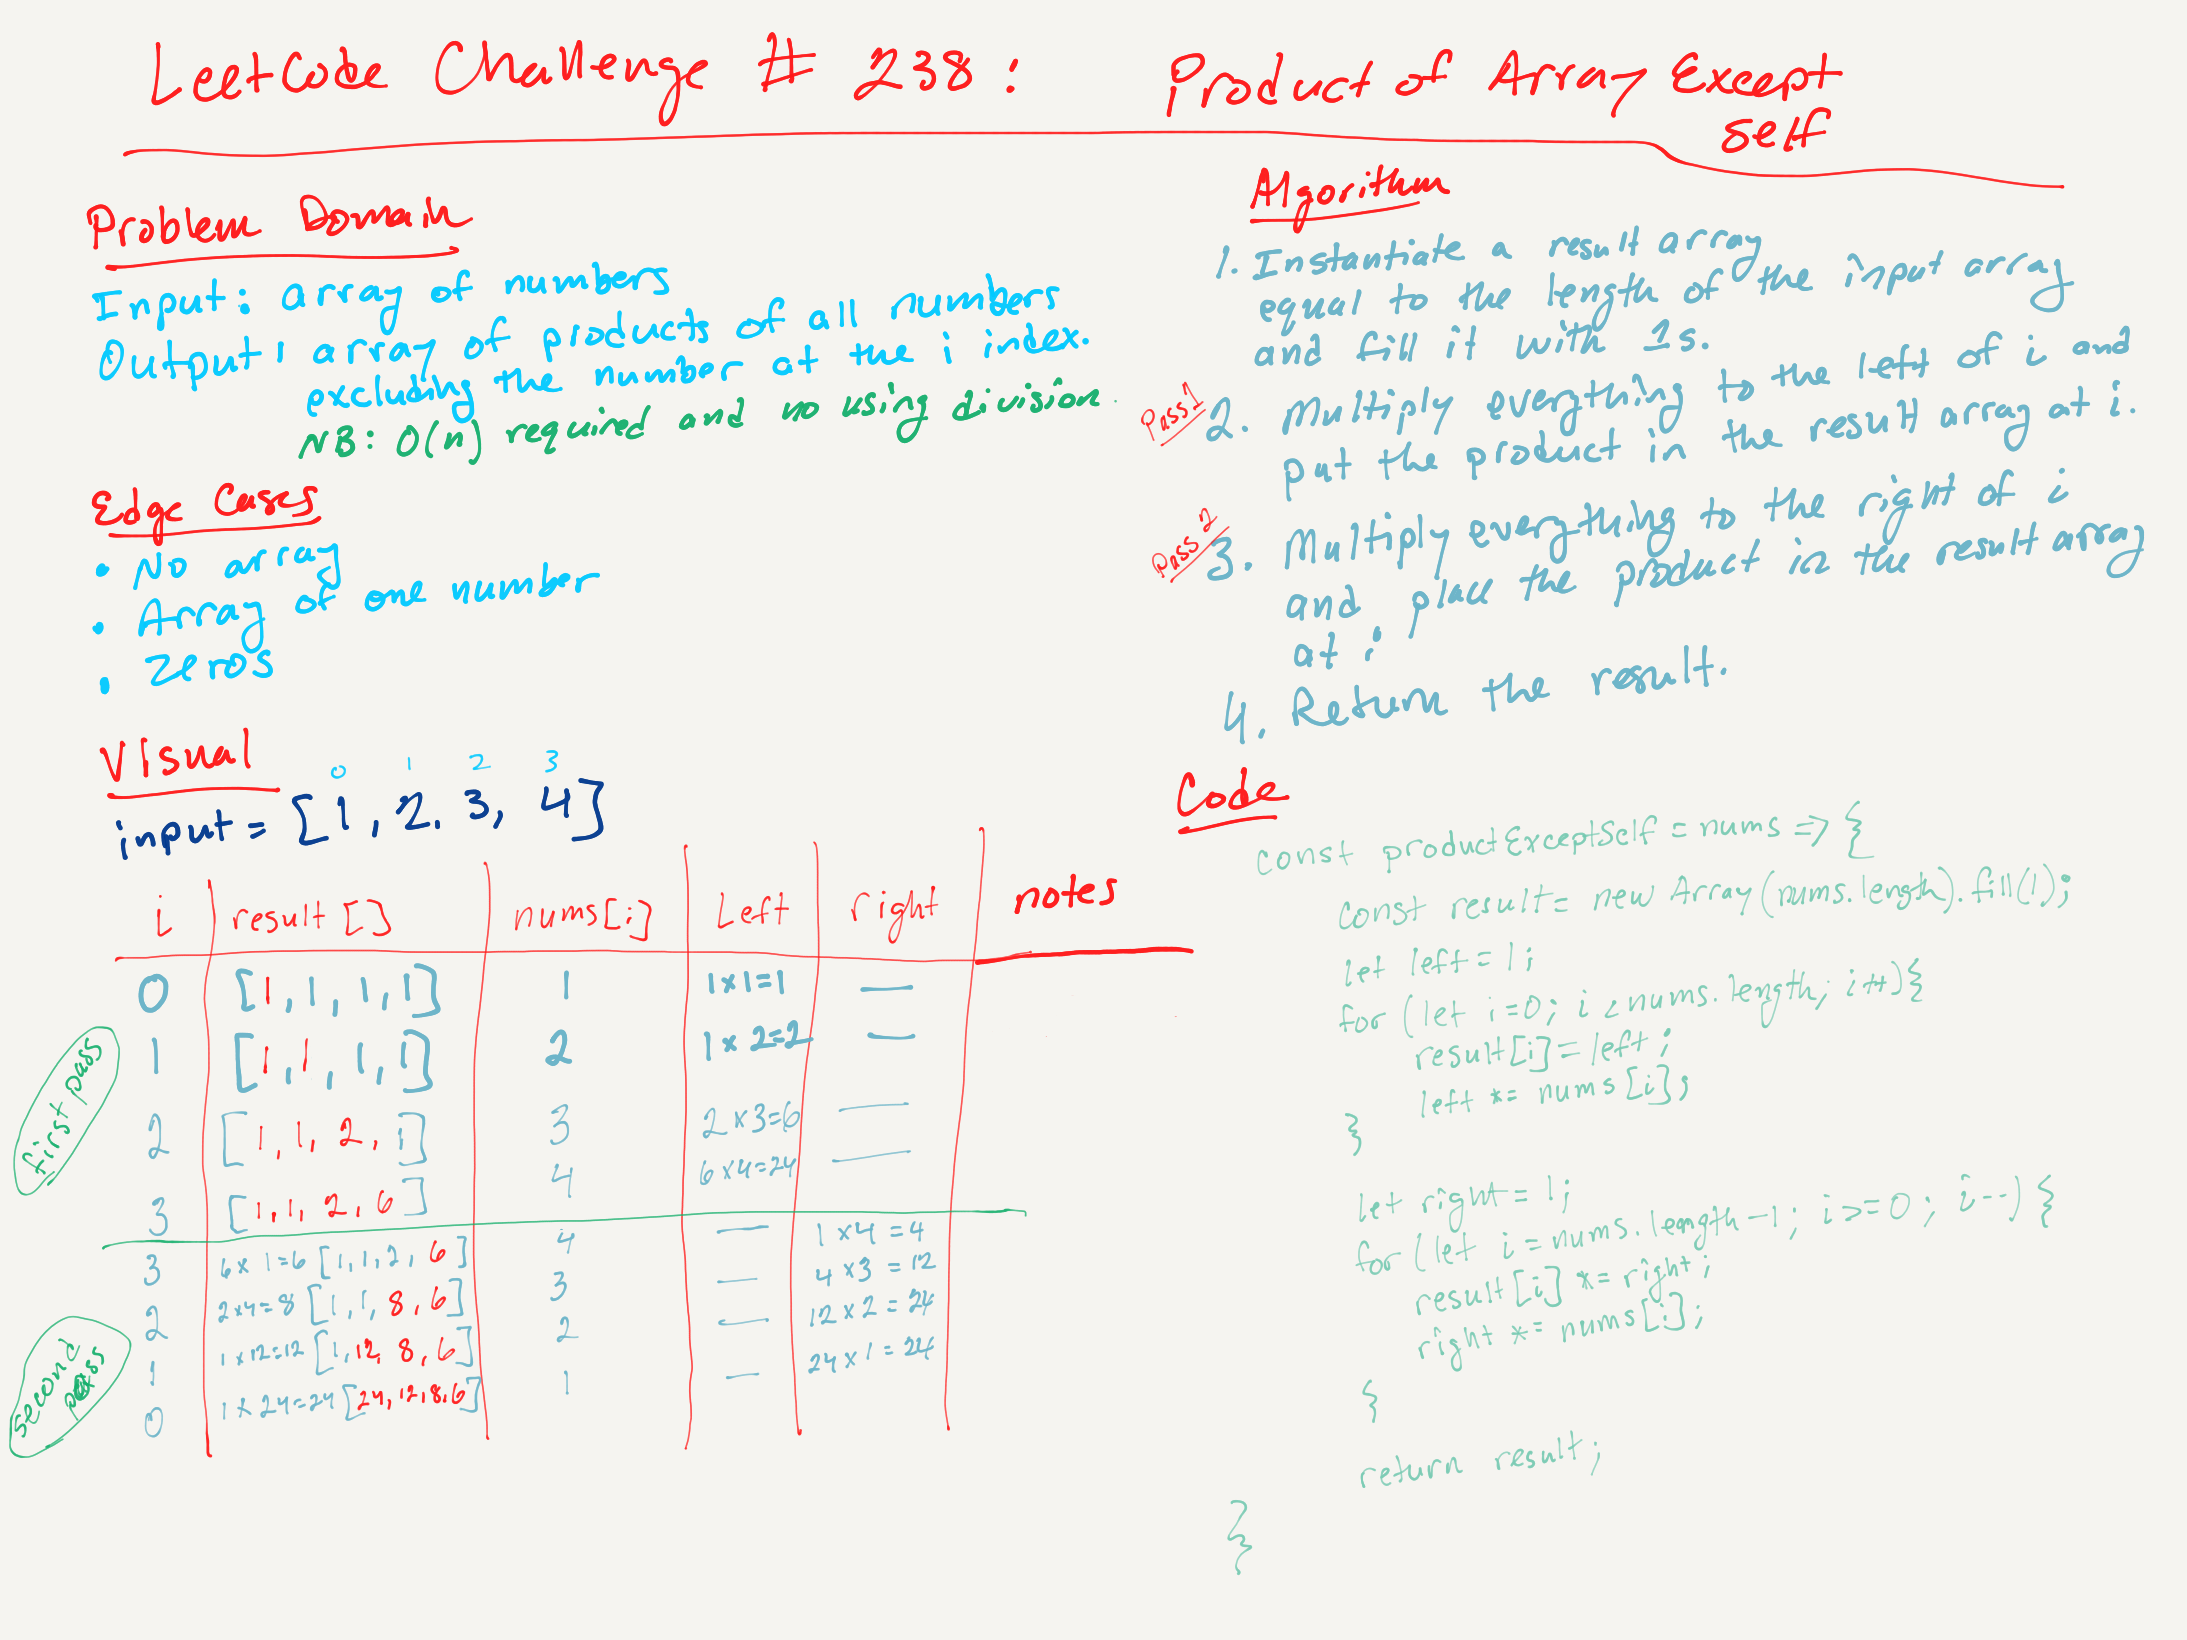 LeetCode Challenge # 238: Product of Array Except
self
Problem Domain
Input: array of numbers
Output: array of products of all numbers
excluding the number at the i index.
NB: O(n) required and no using division.
Edge Cases
• No array
• Array of one number
• Zeros
Visual
0 1 2 3
input = [1, 2, 3, 4]
i result [] nums[i] Left right notes
0 [1, 1, 1, 1] 1 1x1=1 —
1 [1, 1, 1, 1] 2 1x2=2 —
2 [1, 1, 2, 1] 3 2x3=6 —
3 [1, 1, 2, 6] 4 6x4=24 —
first pass
3 6x1=6 [1, 1, 2, 6] 4 — 1x4=4
2 2x4=8 [1, 1, 8, 6] 3 — 4x3=12
1 1x12=12 [1, 12, 8, 6] 2 — 12x2=24
0 1x24=24 [24, 12, 8, 6] 1 — 24x1=24
second pass
Algorithm
1. Instantiate a result array
equal to the length of the input array
and fill it with 1s.
Pass 1
2. Multiply everything to the left of i and
put the product in the result array at i.
Pass 2
3. Multiply everything to the right of i
and place the product in the result array
at i
4. Return the result.
Code
const productExceptSelf = nums => {
const result = new Array(nums.length).fill(1);
let left = 1;
for (let i=0; i < nums.length; i++) {
result[i] = left;
left *= nums[i];
}
let right = 1;
for (let i = nums.length-1; i >= 0; i--) {
result[i] *= right;
right *= nums[i];
}
return result;
}